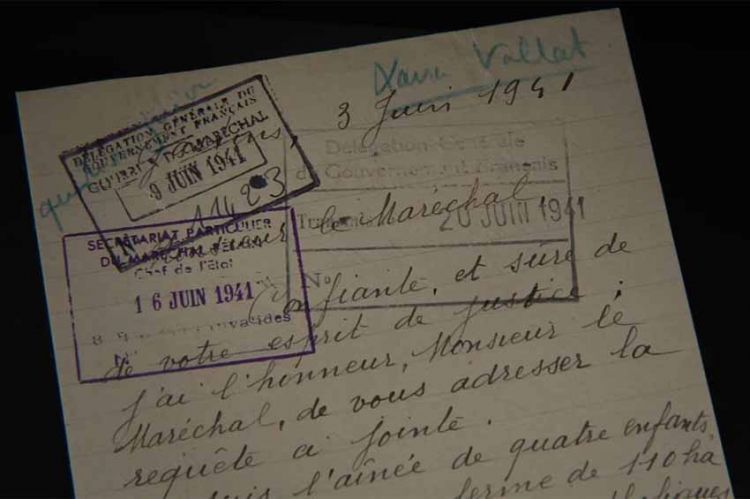 Xavier Vallat
3 Juin 1941
DÉLÉGATION GÉNÉRALE DU
GOUVERNEMENT FRANÇAIS
COURRIER DU MARÉCHAL
9 JUIN 1941
11423
Délégation Générale
du Gouvernement Français
20 JUIN 1941
No
SECRÉTARIAT PARTICULIER
DU MARÉCHAL PÉTAIN
Chef de l'État
16 JUIN 1941
Monsieur le Maréchal
Confiante, et sûre de
de votre esprit de justice ;
j'ai l'honneur, Monsieur le
Maréchal, de vous adresser la
requête ci jointe.
suis l'aînée de quatre enfants,
ferme de 110 ha